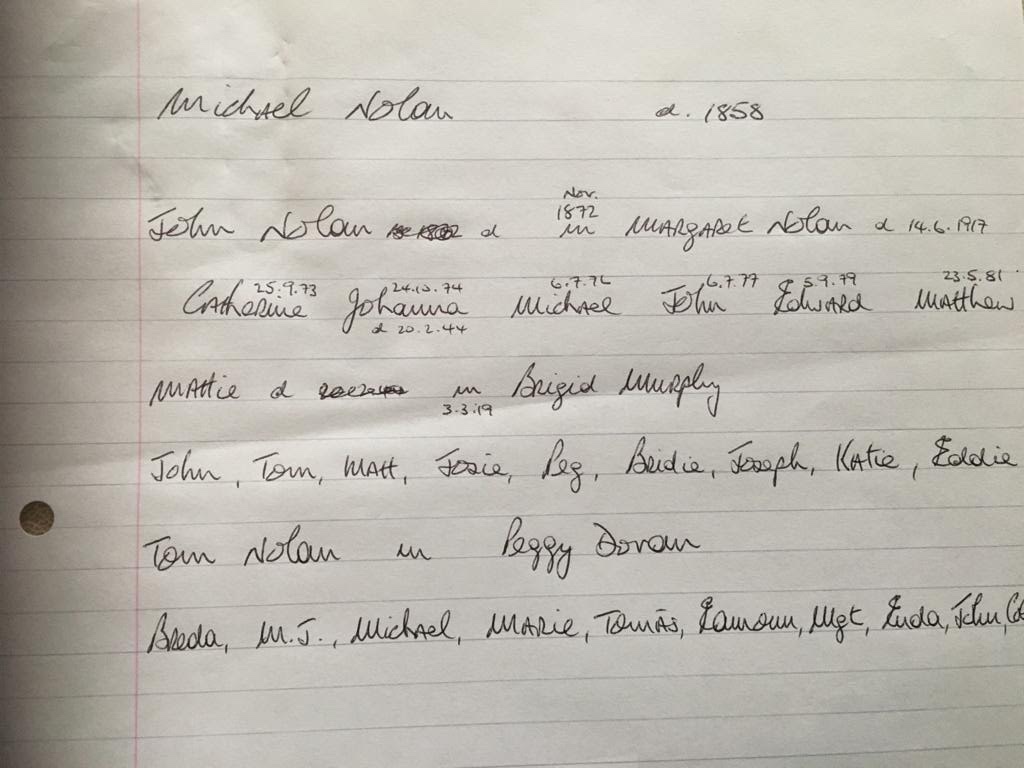 Michael Nolan d. 1858
Nov.
1872
John Nolan d m MARGARET Nolan d 14.6.1917
25.9.73 24.10.74 6.7.76 6.7.77 5.9.79 23.5.81
Catherine Johanna Michael John Edward Matthew
d 20.2.44
Mattie d m Brigid Murphy
3.3.19
John, Tom, Matt, Josie, Peg, Bridie, Joseph, Katie, Eddie
Tom Nolan m Peggy Doran
Breda, M.J., Michael, Marie, Tomás, Eamonn, Mgt, Enda, John,